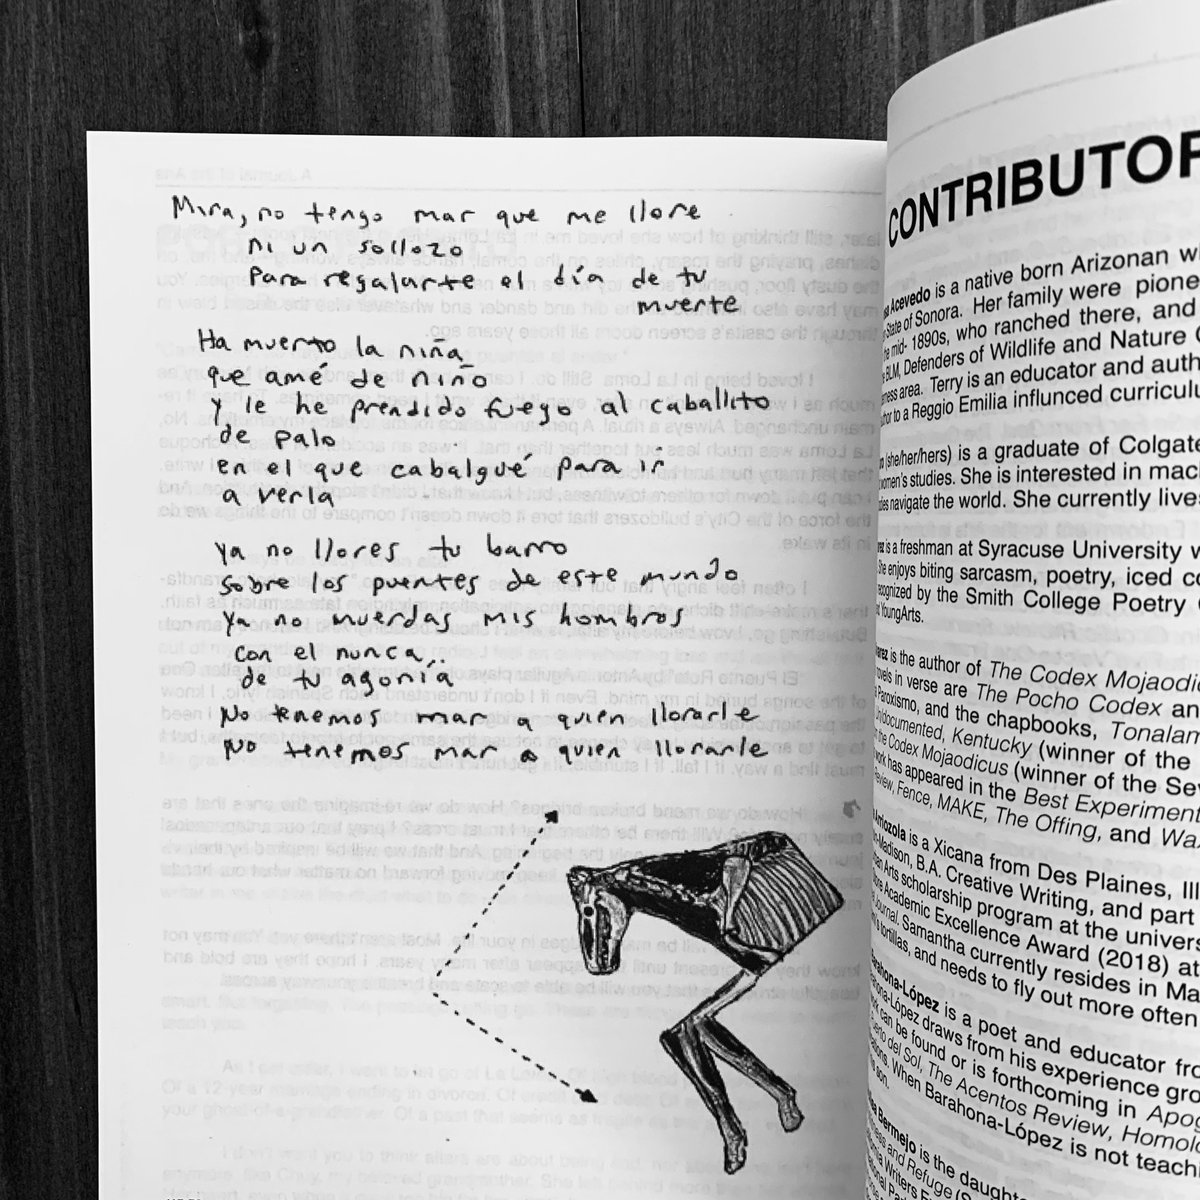 Mira, no tengo mar que me llore
ni un sollozo
para regalarte el día de tu
muerte
Ha muerto la niña
que amé de niño
y le he prendido fuego al caballito
de palo
en el que cabalgué para ir
a verla
ya no llores tu barro
sobre los puentes de este mundo
ya no muerdas mis hombros
con el nunca
de tu agonía
No tenemos mar a quien llorarle
No tenemos mar a quien llorarle
CONTRIBUTOR
Acevedo is a native born Arizonan
State of Sonora. Her family were pione
mid- 1890s, who ranched there, and
BLM, Defenders of Wildlife and Nature
area. Terry is an educator and auth
to a Reggio Emilia influnced curricul
(she/her/hers) is a graduate of Colgat
women's studies. She is interested in mac
navigate the world. She currently live
is a freshman at Syracuse University w
She enjoys biting sarcasm, poetry, iced co
recognized by the Smith College Poetry
YoungArts.
is the author of The Codex Mojaodic
novels in verse are The Pocho Codex an
Paroxismo, and the chapbooks, Tonalam
Undocumented, Kentucky (winner of the
the Codex Mojaodicus (winner of the Se
work has appeared in the Best Experiment
Review, Fence, MAKE, The Offing, and Wa
Arriozola is a Xicana from Des Plaines, Ill
Madison, B.A. Creative Writing, and part
Arts scholarship program at the univers
Academic Excellence Award (2018) at
Journal. Samantha currently resides in Ma
tortillas, and needs to fly out more often
Barahona-López is a poet and educator fro
Barahona-López draws from his experience gro
work can be found or is forthcoming in Apog
Puerto del Sol, The Acentos Review, Homolo
When Barahona-López is not teachi
son.
Bermejo is the daught
and Refuge